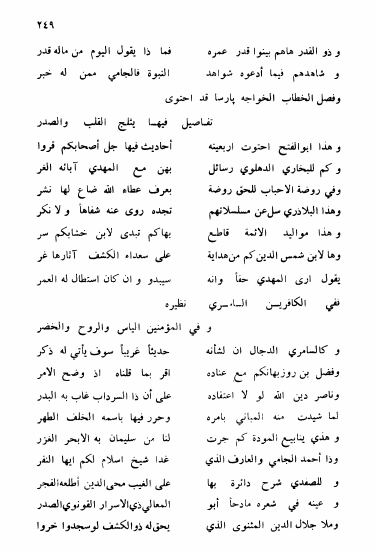 ٢٤٩
و ذو القدر هاهم بينوا قدر عمره فما ذا يقول اليوم من ماله قدر
و شاهدهم فيما أدعوه شواهد النبوة فالجامي ممن له خبر
وفصل الخطاب الخواجه پارسا قد احتوى
تفاصيل فيها يثلج القلب والصدر
و هذا ابوالفتح احتوت اربعينه أحاديث فيها جل أصحابكم قروا
و كم للبخاري الدهلوي رسائل بهن مع المهدي آبائه الغر
وفي روضة الاحباب للحق روضة بعرف عطاء الله ضاع لها نشر
وهذا البلاذري سل عن مسلسلاتهم تجده روى عنه شفاها و لا نكر
و هذا مواليد الائمة قاطع بهاكم تبدى لابن خشابكم سر
وها لابن شمس الدين كم من هداية على سعداء الكشف آثارها غر
يقول ارى المهدي حقاً وانه سيبدو و ان كان استطال له العمر
ففي الكافرين السامري نظيره
و في المؤمنين الياس والروح والخضر
و كالسامري الدجال ان لشأنه حديثاً غريباً سوف يأتي له ذكر
وفضل بن روزبهانكم مع عناده اقر بما قلناه اذ وضح الأمر
وناصر دين الله لو لا اعتقاده على أن ذا السرداب غاب به البدر
لما شيدت منه المباني بامره وحرر فيها باسمه الخلف الطهر
و هذي ينابيع المودة كم جرت لنا من سليمان به الابحر الغزر
وذا أحمد الجامي والعارف الذي غدا شيخ اسلام لكم ايها النفر
و للصفدي شرح دائرة بها على الغيب محي الدين أطلعه الفجر
و عينه في شعره مادحاً أبو المعالي ذي الأسرار القونوي الصدر
وملا جلال الدين المثنوى الذى يحق له ذو الكشف لو سجدوا خروا